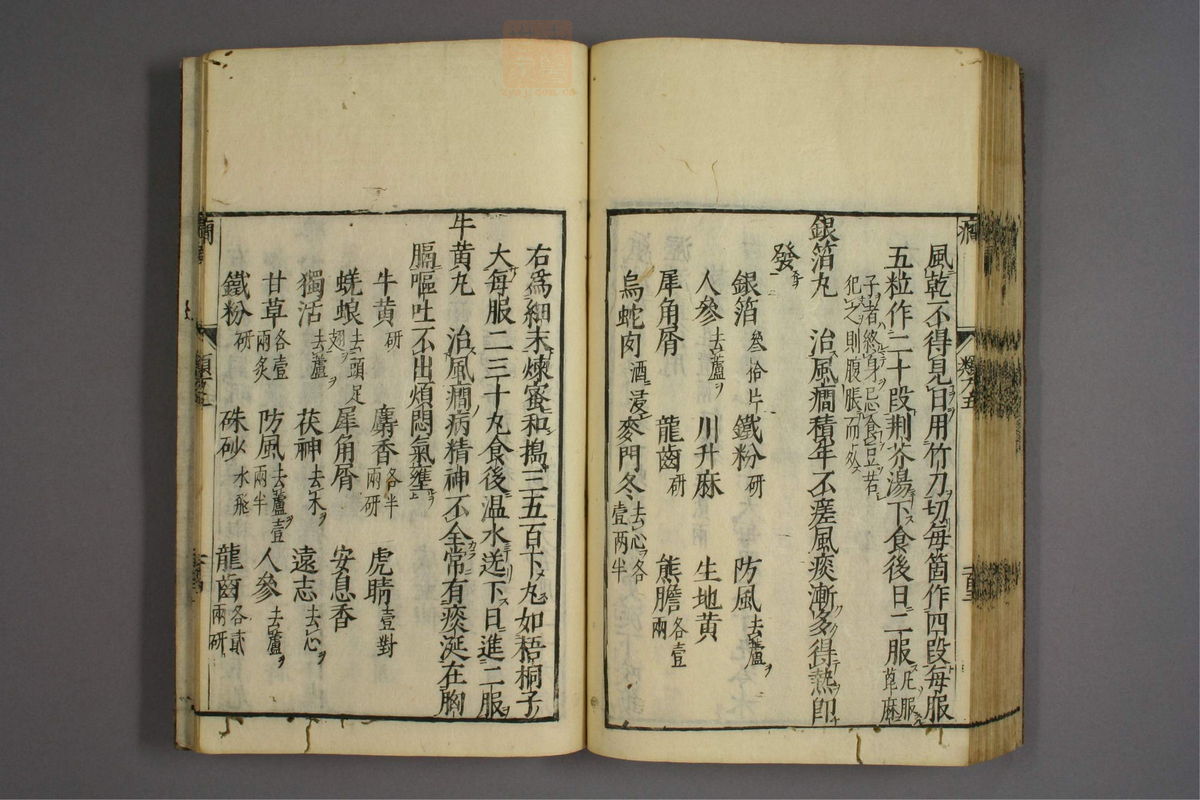 風乾不得見日用竹刀切每箇作四段每服
五粒作二十段荆芥湯下食後日二服凡服草麻
子者終身忌食豆若
犯之則腹脹而死
銀箔丸 治風癇積年不瘥風痰漸多得熱即
發
銀箔叁拾片 鐵粉研 防風去蘆
人參去蘆 川升麻 生地黄
犀角屑 龍齒研 熊膽各壹兩
烏蛇肉酒浸 麥門冬去心各壹两半
右為細末煉蜜和搗三五百下丸如梧桐子
大每服二三十丸食後温水送下日進二服
牛黄丸 治風癇病精神不全常有痰涎在胸
膈嘔吐不出煩悶氣壅
牛黄研 麝香各半兩研 虎睛壹對
蜣蜋去頭足翅 犀角屑 安息香
獨活去蘆 茯神去木 遠志去心
甘草各壹兩炙 防風去蘆壹兩半 人參去蘆
鐵粉研 硃砂水飛 龍齒各貳兩研